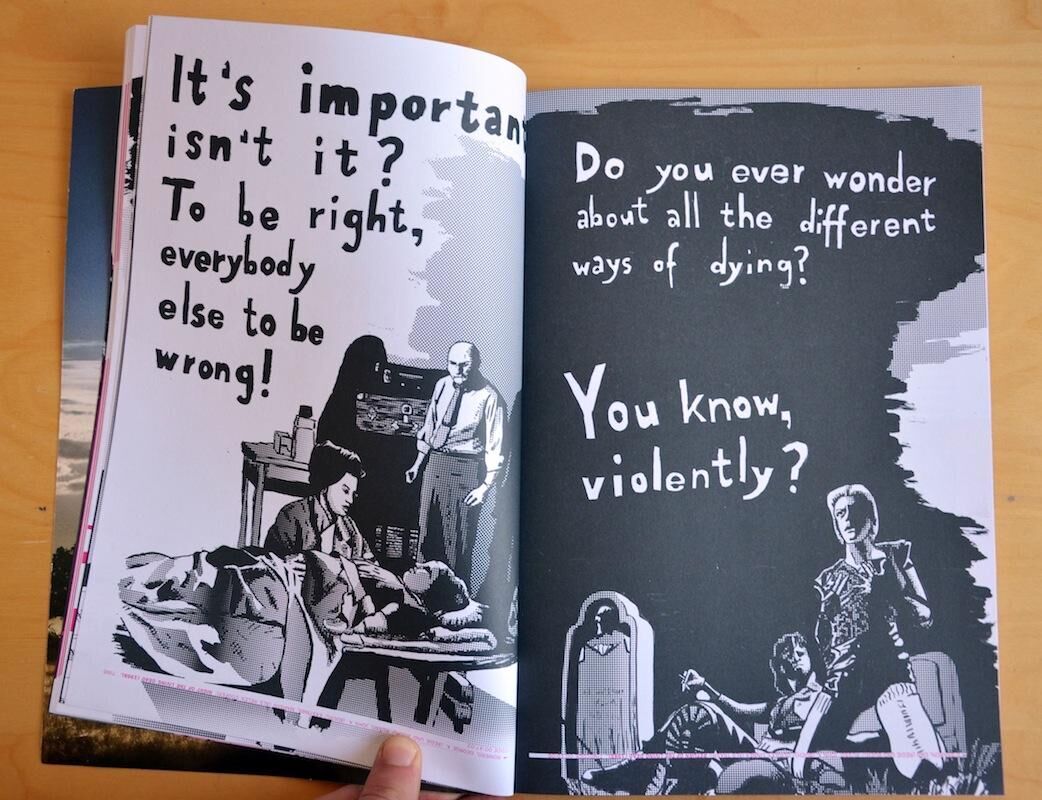 It's importan
isn't it?
To be right,
everybody
else to be
wrong!
Do you ever wonder
about all the different
ways of dying?
You know,
violently?